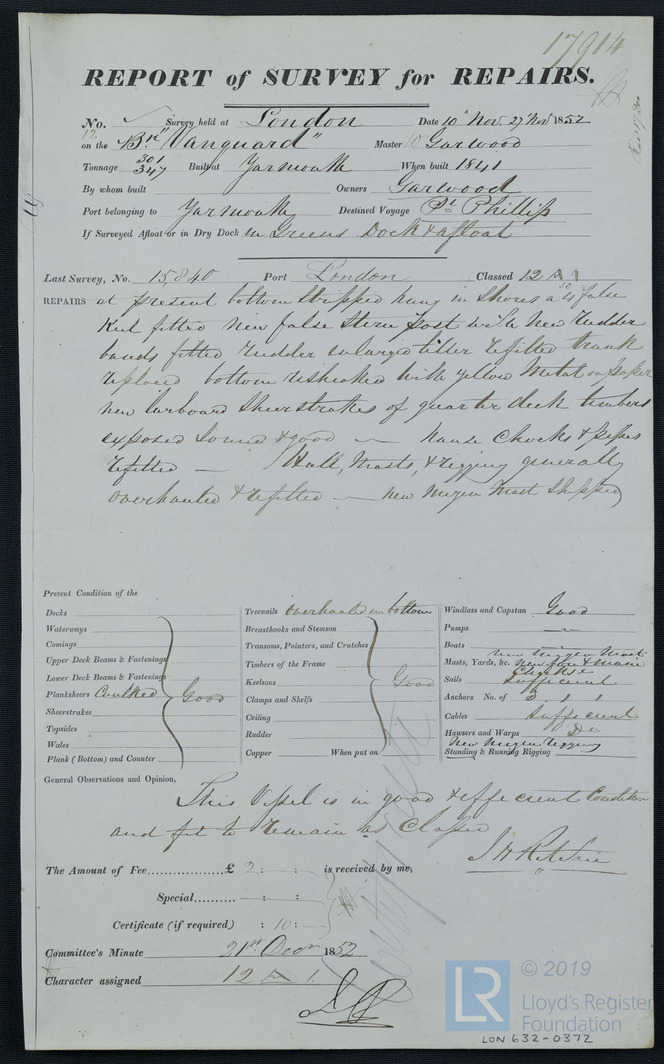 17914
REPORT of SURVEY for REPAIRS.
No. Survey held at London Date 10th Nov. 27 Nov 1852
12
on the Brn "Vanguard" Master Garwood
Tonnage 301 347 Built at Yarmouth When built 1841
By whom built Owners Garwood
Port belonging to Yarmouth Destined Voyage Pt Phillip
If Surveyed Afloat or in Dry Dock in Greens Dock & afloat
Last Survey, No. 15840 Port London Classed 12 A 1
REPAIRS at present bottom stripped hung in Shores a false
Keel fitted new false Stern post with new Rudder
bands fitted rudder enlarged tiller refitted trunk
replaced bottom resheathed with yellow metal on paper
new larboard Sheerstrakes of quarter deck timbers
exposed Sound & good — Hawse Chocks & pipes
refitted — Hull, Masts, & Rigging generally
overhauled & refitted — New Mizen Mast Shipped
Present Condition of the
Decks
Waterways
Comings
Upper Deck Beams & Fastenings
Lower Deck Beams & Fastenings
Planksheers Caulked Good
Sheerstrakes
Topsides
Wales
Plank (Bottom) and Counter
Treenails overhauled in bottom
Breasthooks and Stemson
Transoms, Pointers, and Crutches
Timbers of the Frame
Keelsons Good
Clamps and Shelfs
Ceiling
Rudder
Copper When put on
Windlass and Capstan Good
Pumps
Boats
new Mizen Mast
Masts, Yards, &c. new fore & main
Cheeks &
Sails Sufficient
Anchors No. of 3 . 1 . 1
Cables Sufficient
Hawsers and Warps Do
New Mizen Rigging
Standing & Running Rigging
General Observations and Opinion,
This Vessel is in good & efficient Condition
and fit to remain as Classed
J H Ritchie
The Amount of Fee £ 2 : : is received by me,
Special : :
Certificate (if required) : 10 :
Committee's Minute 21st Decr 1852
Character assigned 12 A 1.
LR
© 2019
Lloyd's Register
Foundation
LON 632-0372